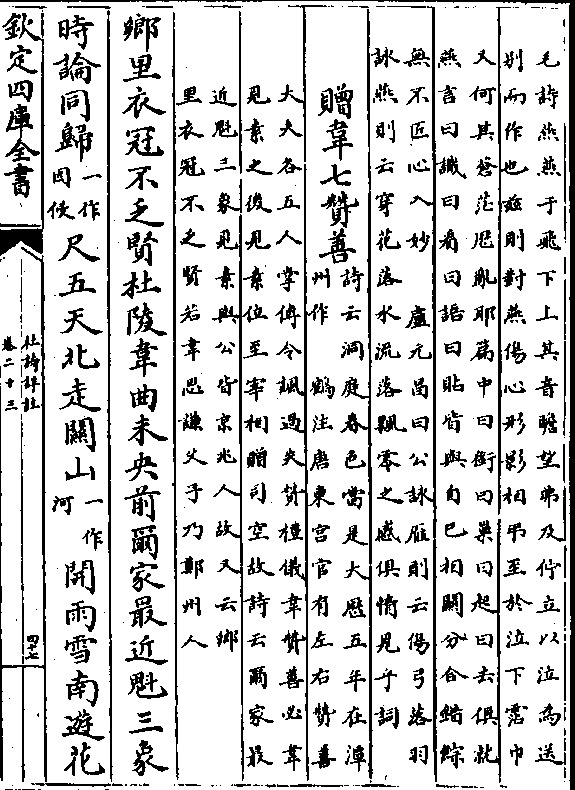 毛詩燕燕于飛下上其音瞻望弗及佇立以泣為送
別而作也茲則對燕傷心形影相弔至於泣下霑巾
又何其蒼茫歷亂耶篇中曰銜曰巢曰起曰去俱就
燕言曰識曰看曰語曰貼皆與自己相關分合錯綜
無不匠心入妙　盧元昌曰公詠雁則云傷弓落羽
詠燕則云穿花落水流落飄零之感俱情見乎詞
贈韋七贊善
詩云洞庭春色當是大曆五年在潭
州作　鶴注唐東宮官有左右贊善
大夫各五人掌傅令諷過失贊禮儀韋贊善必韋
見素之後見素位至宰相贈司空故詩云爾家最
近魁三象見素與公皆京兆人故又云鄉
里衣冠不乏賢若韋思謙父子乃鄭州人
鄉里衣冠不乏賢杜陵韋曲未央前爾家最近魁三象
時論同歸一作因侵尺五天北走關山一作河開雨雪南遊花
欽定四庫全書
杜詩詳註
卷二十三
四十七